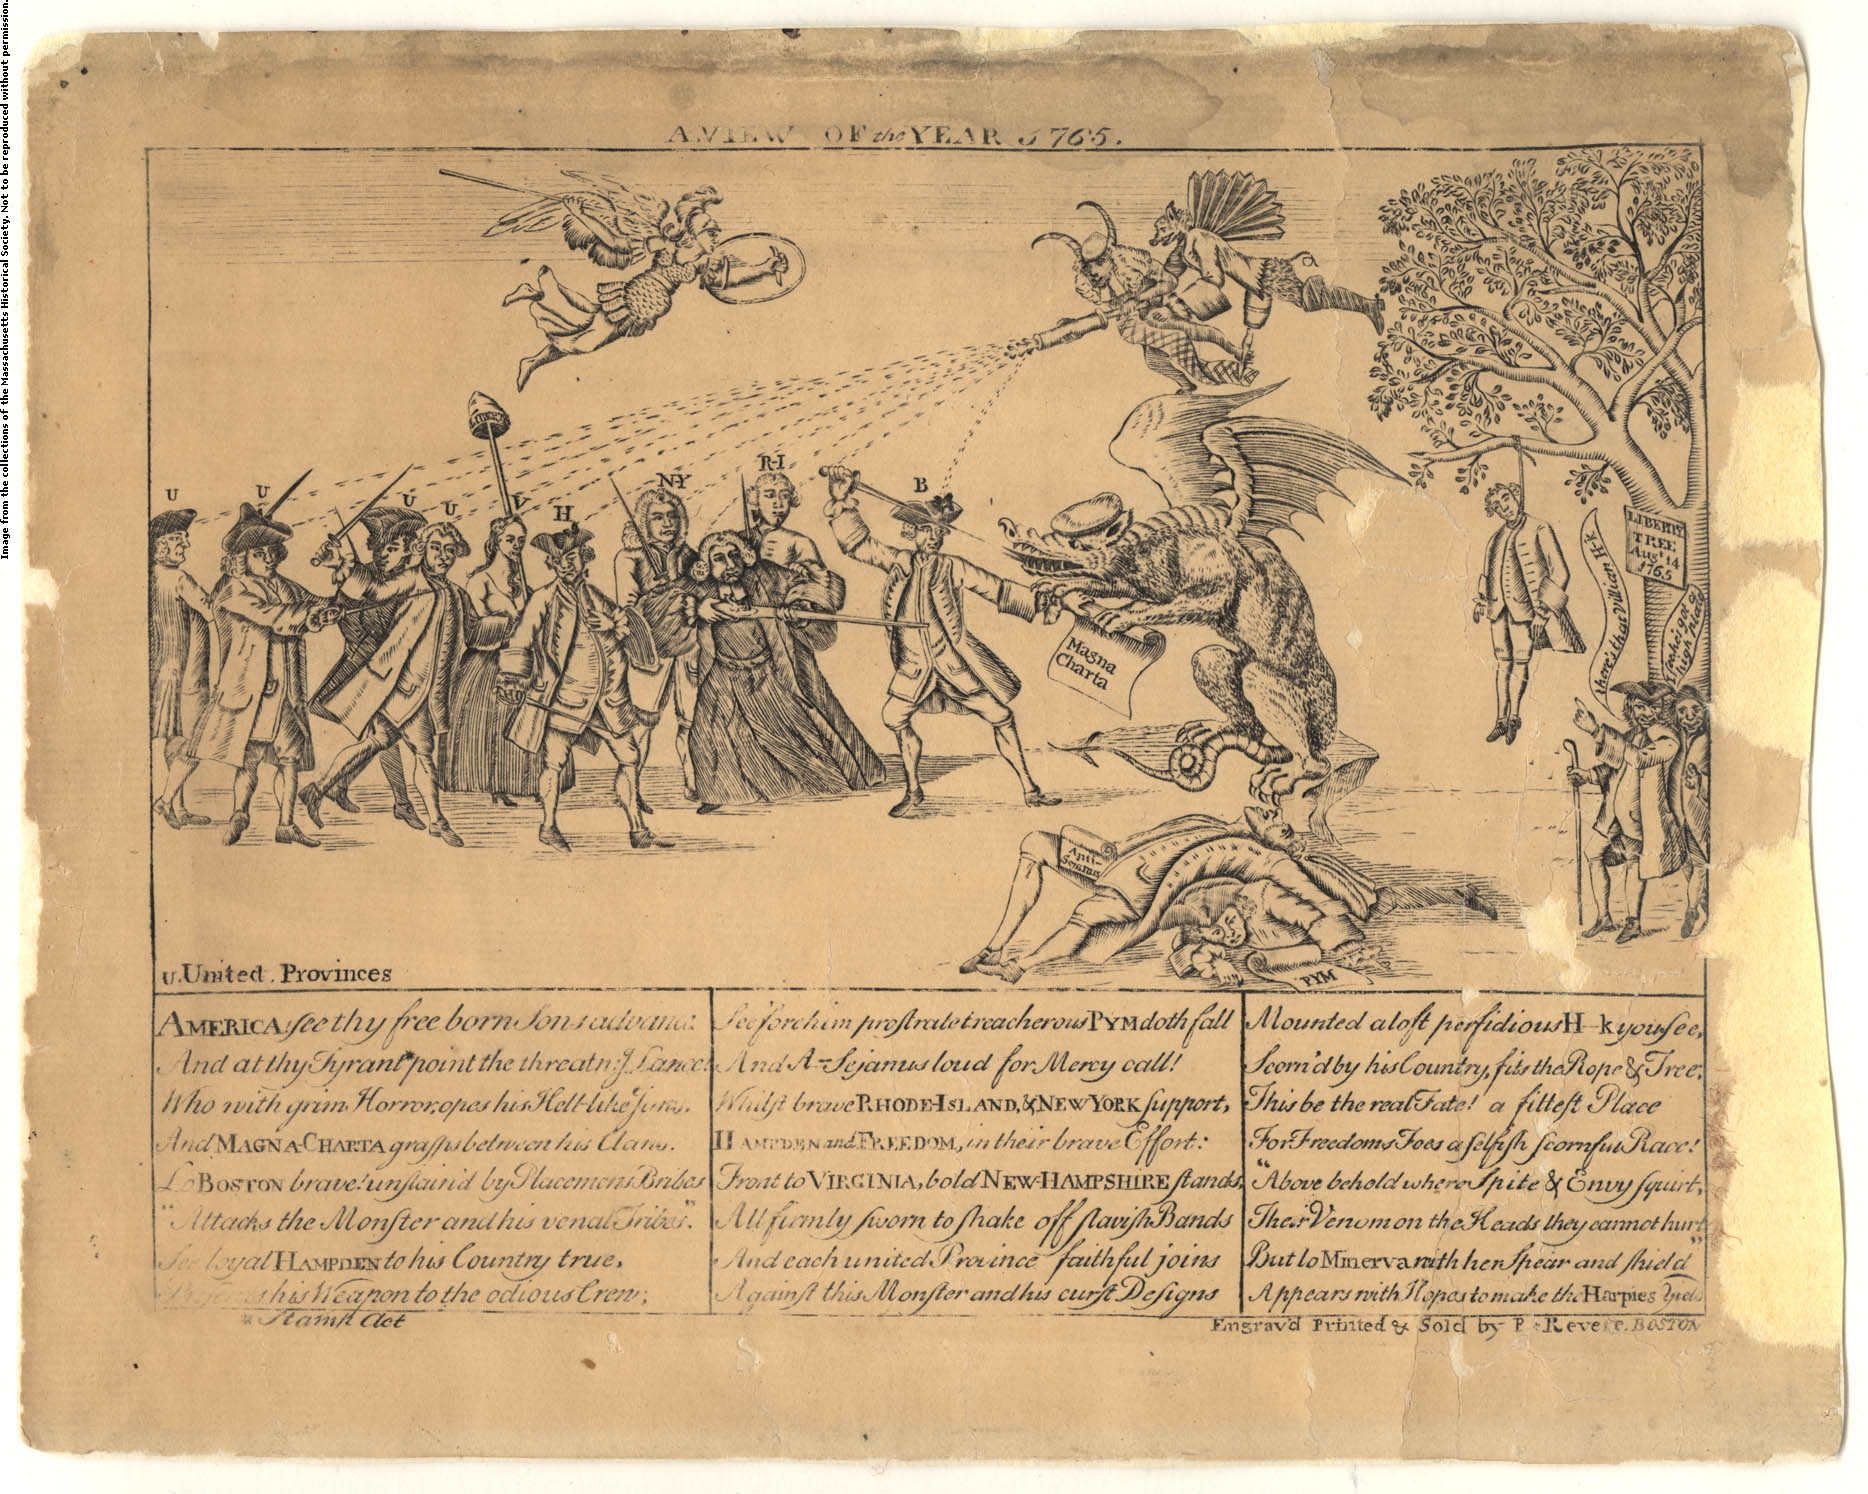 Image from the collections of the Massachusetts Historical Society. Not to be reproduced without permission.
A VIEW OF the YEAR 1765.
LIBERTY
U
U
U
U
V
H
N-Y
R-I
B
Magna
Charta
LIBERTY
TREE
Augst 14
1765
there's that Villian H-k
I see he's got a
high place
Anti-
Sejanus
PYM
U. United Provinces
AMERICA! see thy free born Sons advance
And at thy Tyrant* point the threat'ning Lance!
Who with grim Horror opes his Hell-like Jaws,
And MAGNA-CHARTA grasps between his Claws.
Lo BOSTON brave! unstain'd by Placemens Bribes
"Attacks the Monster and his venal Tribes".
See loyal HAMPDEN to his Country true,
Presents his Weapon to the odious Crew;
See fore him prostrate treacherous PYM doth fall
And A-Sejanus loud for Mercy call!
Whilst brave RHODE-ISLAND, & NEW YORK support,
HAMPDEN and FREEDOM, in their brave Effort:
Front to VIRGINIA, bold NEW-HAMPSHIRE stands,
All firmly sworn to shake off slavish Bands
And each united Province faithful joins
Against this Monster and his curst Designs
Mounted aloft perfidious H--k you see,
Scorn'd by his Country, fits the Rope & Tree;
This be the real Fate! a fittest Place
For Freedoms Foes a selfish scornful Race!
"Above behold where Spite & Envy squirt,
Their Venom on the Heads they cannot hurt
But lo Minerva with her Spear and shield"
Appears with Hopes to make the Harpies Yield
* Stamp Act
Engrav'd Printed & Sold by P. Revere. BOSTON